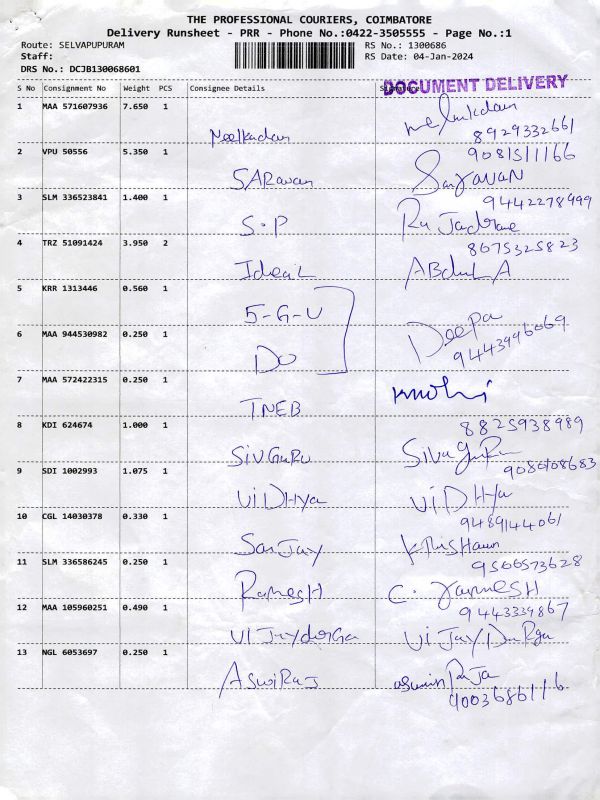 THE PROFESSIONAL COURIERS, COIMBATORE
Delivery Runsheet - PRR - Phone No.:0422-3505555 - Page No.:1
Route: SELVAPUPURAM RS No.: 1300686
Staff: RS Date: 04-Jan-2024
DRS No.: DCJB130068601
DOCUMENT DELIVERY
S No Consignment No Weight PCS Consignee Details Signature
1 MAA 571607936 7.650 1
Neelkadan
8929332661
2 VPU 50556 5.350 1
9081511166
SARavan SaraVAN
3 SLM 336523841 1.400 1
9442278999
S.P
4 TRZ 51091424 3.950 2
8675325823
Ideal ABdul A
5 KRR 1313446 0.560 1
5-G-U
6 MAA 944530982 0.250 1
Deepa
9443996069
DO
7 MAA 572422315 0.250 1
TNEB
8 KDI 624674 1.000 1
8825938989
SivGuRu SivaguRu
9 SDI 1002993 1.075 1
9080108683
ViDHya ViDHya
10 CGL 14030378 0.330 1
9489144061
SanJay
11 SLM 336586245 0.250 1
9500573628
RamesH C. ramesH
12 MAA 105960251 0.490 1
9443339867
ViJaydurga ViJay DuRga
13 NGL 6053697 0.250 1
AswiRaj
9003686116